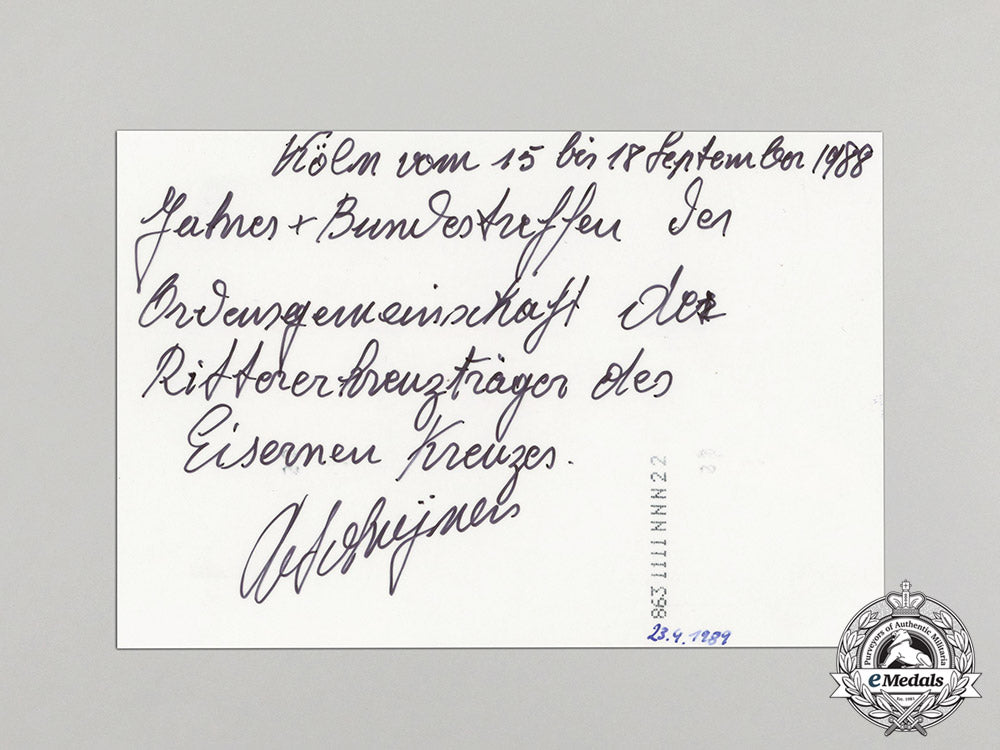 Köln vom 15 bis 18 September 1988
Jahres + Bundestreffen der
Ordensgemeinschaft der
Rittererkreuzträger des
Eisernen Kreuzes.
863 11111NNNN 22
23.9.1989
Purveyors of Authentic Militaria
eMedals
Est. 1985